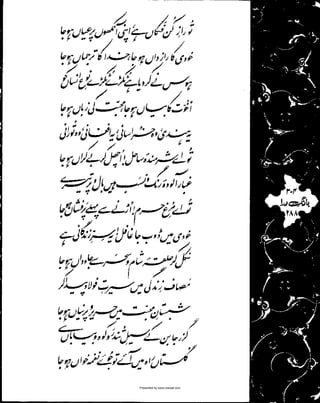 تو رازِ کن فکاں ہے، اپنی آنکھوں پر عیاں ہو جا
خودی کا رازداں ہو جا، خدا کا ترجماں ہو جا
ہوس نے کر دیا ہے ٹکڑے ٹکڑے نوعِ انساں کو
اخوت کا بیاں ہو جا، محبت کی زباں ہو جا
یہ ہندی، وہ خراسانی، یہ افغانی، وہ تورانی
تو اے شرمندۂ ساحل! اچھل کر بے کراں ہو جا
غبار آلودۂ رنگ و نسب ہیں بال و پر تیرے
تو اے مرغِ حرم! اڑنے سے پہلے پر فشاں ہو جا
خودی میں ڈوب جا غافل! یہ سرِ زندگانی ہے
نکل کر حلقۂ شام و سحر سے جاوداں ہو جا
مصافِ زندگی میں سیرتِ فولاد پیدا کر
شبستانِ محبت میں حریر و پرنیاں ہو جا
گزر جا بن کے سیلِ تند رو کوہ و بیاباں سے
گلستاں راہ میں آئے تو جوئے نغمہ خواں ہو جا
۳۰۳
بانگِ درا
۲۸۸
Presented by www.ziaraat.com